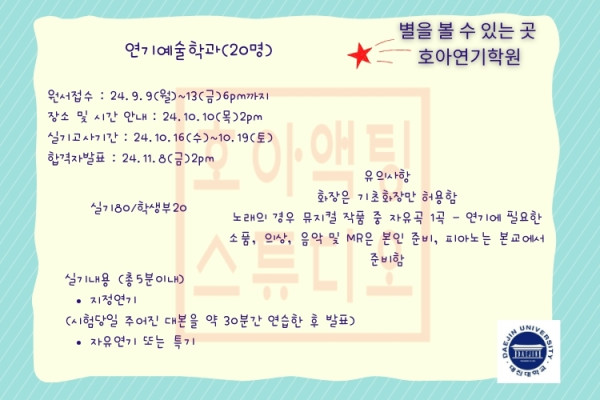 별을 볼 수 있는 곳
호아연기학원
연기예술학과(20명)
원서접수 : 24.9.9(월)~13(금)6pm까지
장소 및 시간 안내 : 24.10.10(목)2pm
실기고사기간 : 24.10.16(수)~10.19(토)
합격자발표 : 24.11.8(금)2pm
유의사항
화장은 기초화장만 허용함
노래의 경우 뮤지컬 작품 중 자유곡 1곡 - 연기에 필요한
소품, 의상, 음악 및 MR은 본인 준비, 피아노는 본교에서
준비함
실기80/학생부20
실기내용 (총5분이내)
• 지정연기
(시험당일 주어진 대본을 약 30분간 연습한 후 발표)
• 자유연기 또는 특기
호아액팅
스튜디오
DAEJIN UNIVERSITY
대진대학교